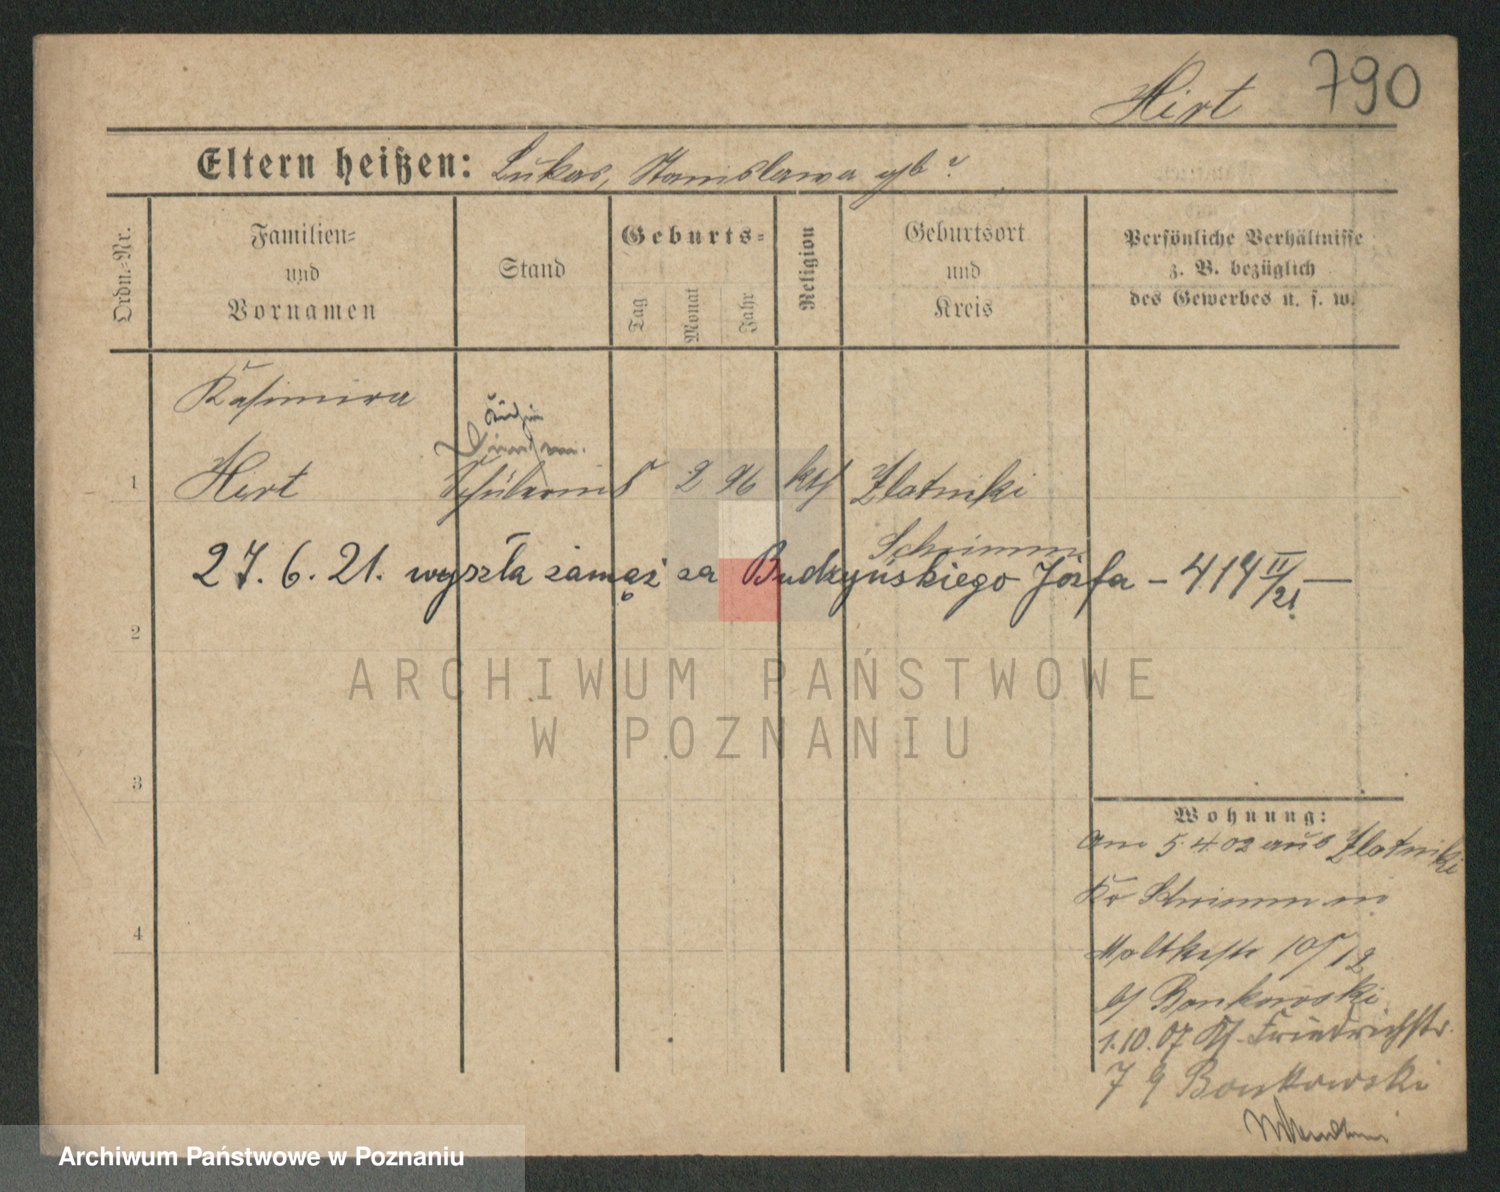 790
Hirt
Eltern heißen: Lukas, Stanislawa geb ?
Ordn.-Nr.
Familien-
und
Vornamen
Stand
Geburts-
Tag
Monat
Jahr
Religion
Geburtsort
und
Kreis
Persönliche Verhältnisse
z. B. bezüglich
des Gewerbes u. s. w.
Kasimira
1 Hirt Schülerin 5 2 96 kth Zlotniki
Schrimm
27. 6. 21. wyszła zamąż za Budzyńskiego Józfa – 414 II/21 —
2
3
4
Wohnung:
Am 5.4.02 aus Zlotniki
Kr Schrimm in
Moltkestr 10/12
b/ Bonkowski
1.10.07 Friedrichstr.
7 9 Bonkowski
ARCHIWUM PAŃSTWOWE
W POZNANIU
Archiwum Państwowe w Poznaniu